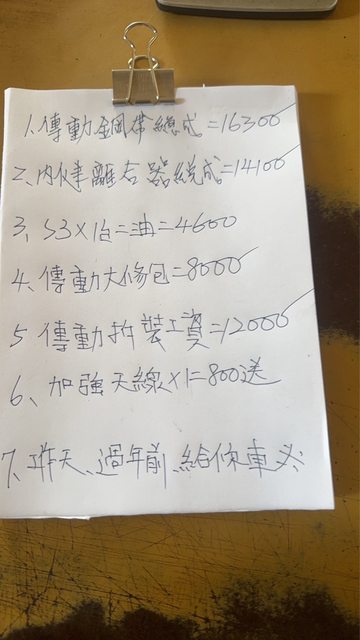 1.傳動鋼帶總成=16300
2、內仹離合器總成=14100
3、S3×1台=油=4600
4、傳動大修包=8000
5 傳動拆裝工資=12000
6、加強天線×1=800送
7、昨天、過年前、給修車